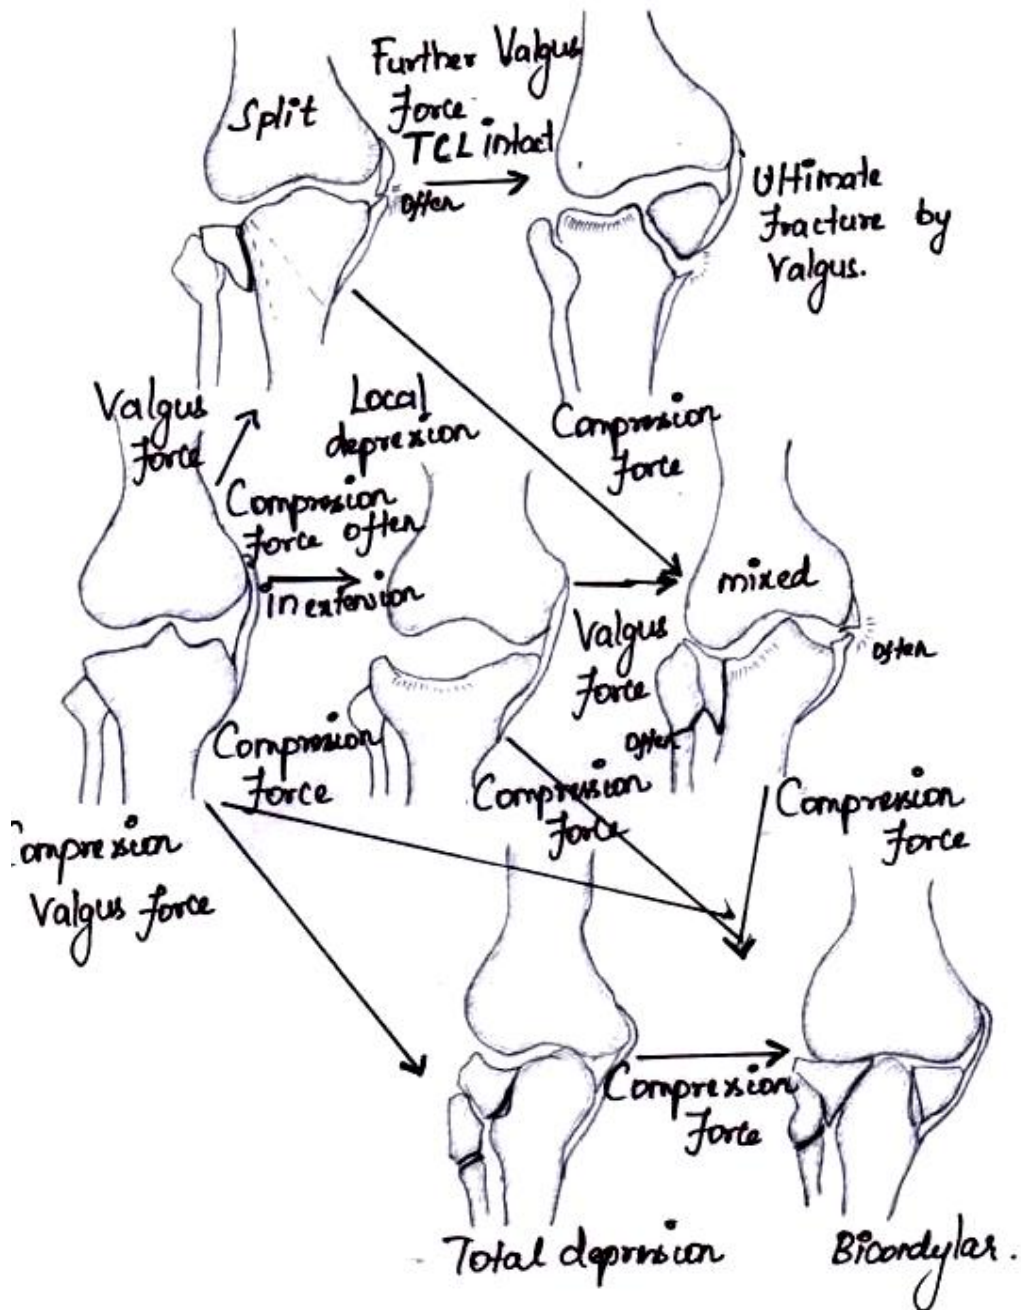 Split
Further Valgus
Force
TCL intact
Often
Ultimate
Fracture by
Valgus.
Valgus
Force
Local
depression
Compression
Force
Compression
Force often
in extension
mixed
Valgus
Force
Often
Often
Compression
Force
Compression
Force
Compression
Force
Compression
Valgus Force
Compression
Force
Total depression
Bicondylar.